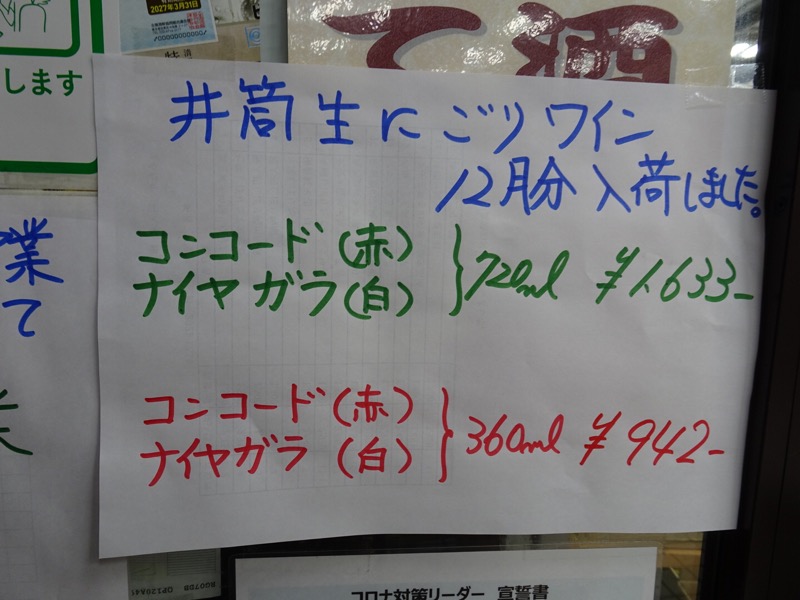 2027年3月31日
します
井筒生にごりワイン
12月分入荷しました。
コンコード(赤)
ナイヤガラ(白)
720ml ¥1,633-
コンコード(赤)
ナイヤガラ(白)
360ml ¥942-
業
て
コロナ対策リーダー 宣誓書